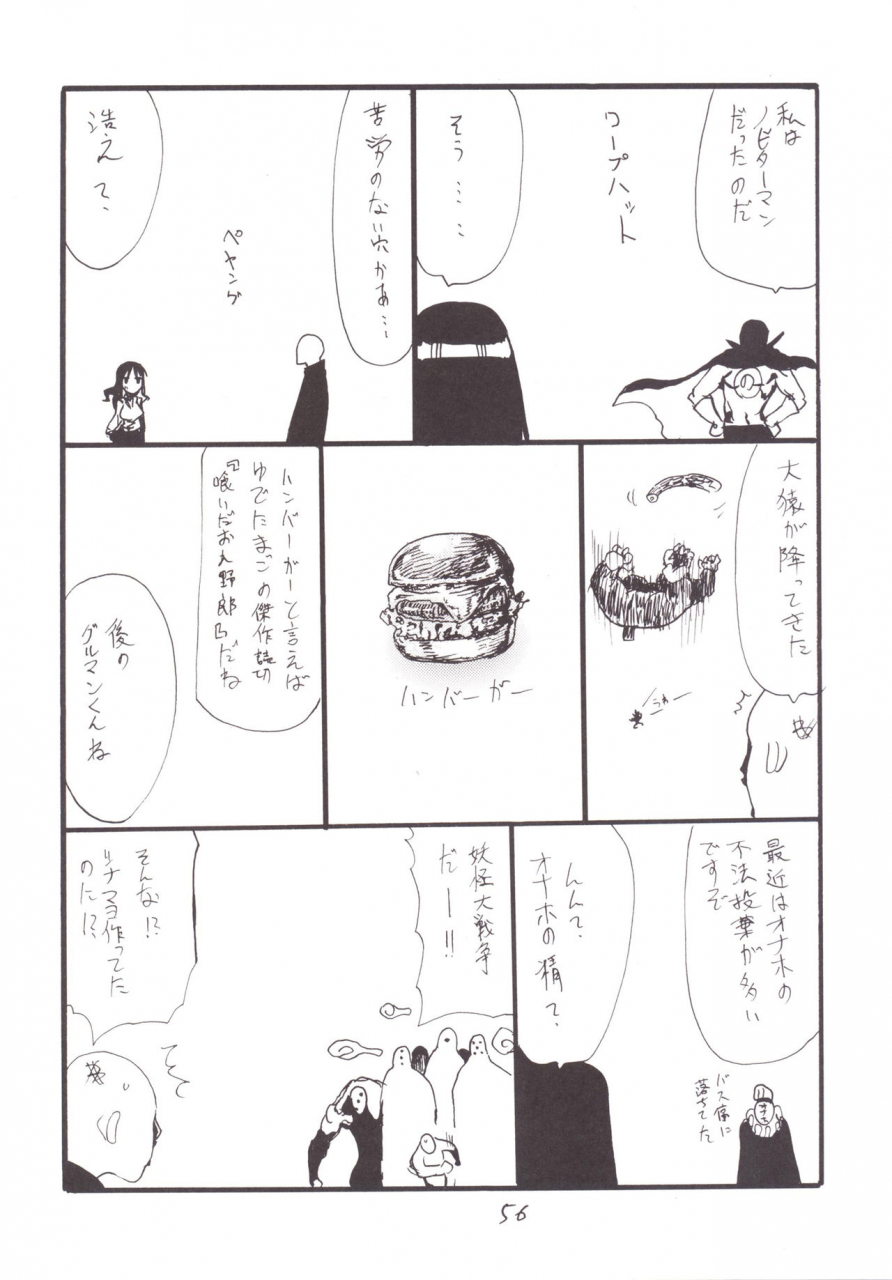 私は
ノビターマン
だったのだ
ワープハット
そう……
苦労のない穴かあ…
ペヤング
浩えて、
大猿が降ってきた
うわー
ハンバーガー
ハンバーガーと言えば
ゆでたまごの傑作読切
『喰いだおれ野郎』だね
後の
グルマンくんね
最近はオナホの
不法投棄が多い
ですぞ
バス停に
落ちてた
んんて、
オナホの精て、
妖怪大戦争
だー!!
そんな!?
ツナマヨ作ってた
のに!?
56